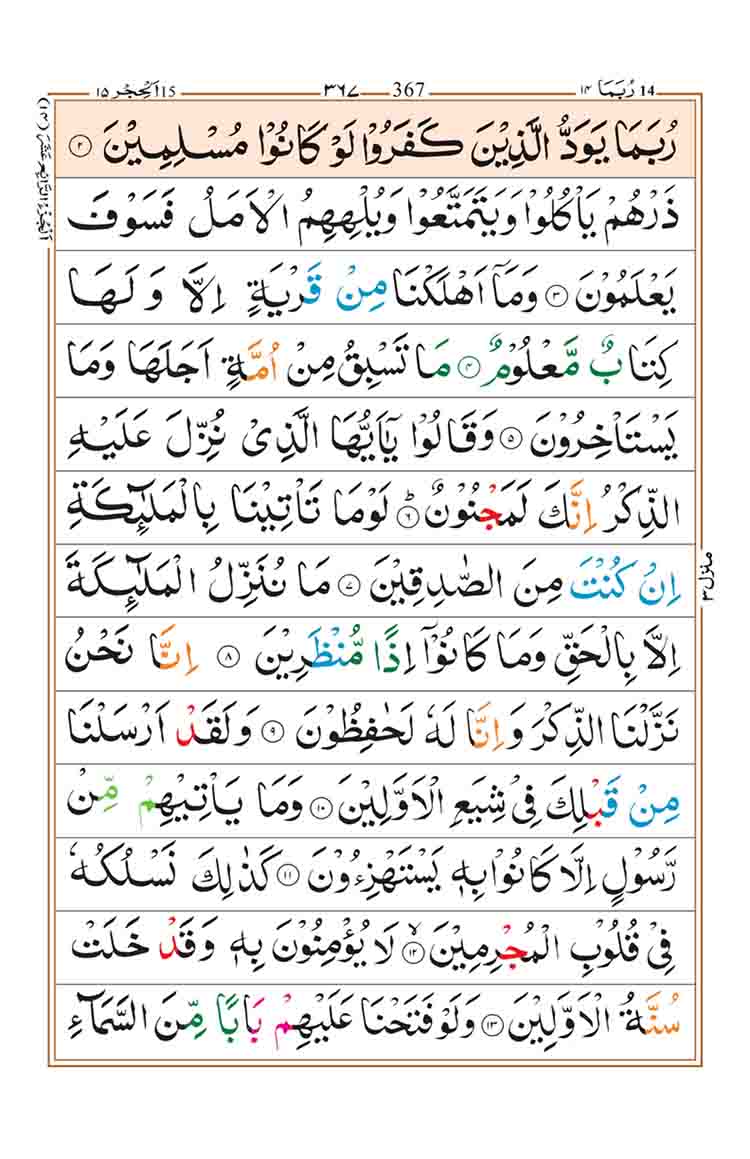 رُبَمَا 14 ۱۴ 367 ۳۶۷ اَلْحِجْر 15 ۱۵
رُبَمَا يَوَدُّ الَّذِيْنَ كَفَرُوْا لَوْ كَانُوْا مُسْلِمِيْنَ ۲
ذَرْهُمْ يَاْكُلُوْا وَيَتَمَتَّعُوْا وَيُلْهِهِمُ الْاَمَلُ فَسَوْفَ
يَعْلَمُوْنَ ۳ وَمَاۤ اَهْلَكْنَا مِنْ قَرْيَةٍ اِلَّا وَلَهَا
كِتَابٌ مَّعْلُوْمٌ ۴ مَا تَسْبِقُ مِنْ اُمَّةٍ اَجَلَهَا وَمَا
يَسْتَاْخِرُوْنَ ۵ وَقَالُوْا يٰۤاَيُّهَا الَّذِىْ نُزِّلَ عَلَيْهِ
الذِّكْرُ اِنَّكَ لَمَجْنُوْنٌ ؕ ۶ لَوْمَا تَاْتِيْنَا بِالْمَلٰٓئِكَةِ
اِنْ كُنْتَ مِنَ الصّٰدِقِيْنَ ۷ مَا نُنَزِّلُ الْمَلٰٓئِكَةَ
اِلَّا بِالْحَقِّ وَمَا كَانُوْۤا اِذًا مُّنْظَرِيْنَ ۸ اِنَّا نَحْنُ
نَزَّلْنَا الذِّكْرَ وَاِنَّا لَهٗ لَحٰفِظُوْنَ ۹ وَلَقَدْ اَرْسَلْنَا
مِنْ قَبْلِكَ فِىْ شِيَعِ الْاَوَّلِيْنَ ۱۰ وَمَا يَاْتِيْهِمْ مِّنْ
رَّسُوْلٍ اِلَّا كَانُوْا بِهٖ يَسْتَهْزِءُوْنَ ۱۱ كَذٰلِكَ نَسْلُكُهٗ
فِىْ قُلُوْبِ الْمُجْرِمِيْنَ ۙ ۱۲ لَا يُؤْمِنُوْنَ بِهٖ وَقَدْ خَلَتْ
سُنَّةُ الْاَوَّلِيْنَ ۱۳ وَلَوْ فَتَحْنَا عَلَيْهِمْ بَابًا مِّنَ السَّمَآءِ
اَلْجُزْءُ الرَّابِعُ عَشَرَ (۱۴)
منزل ۳